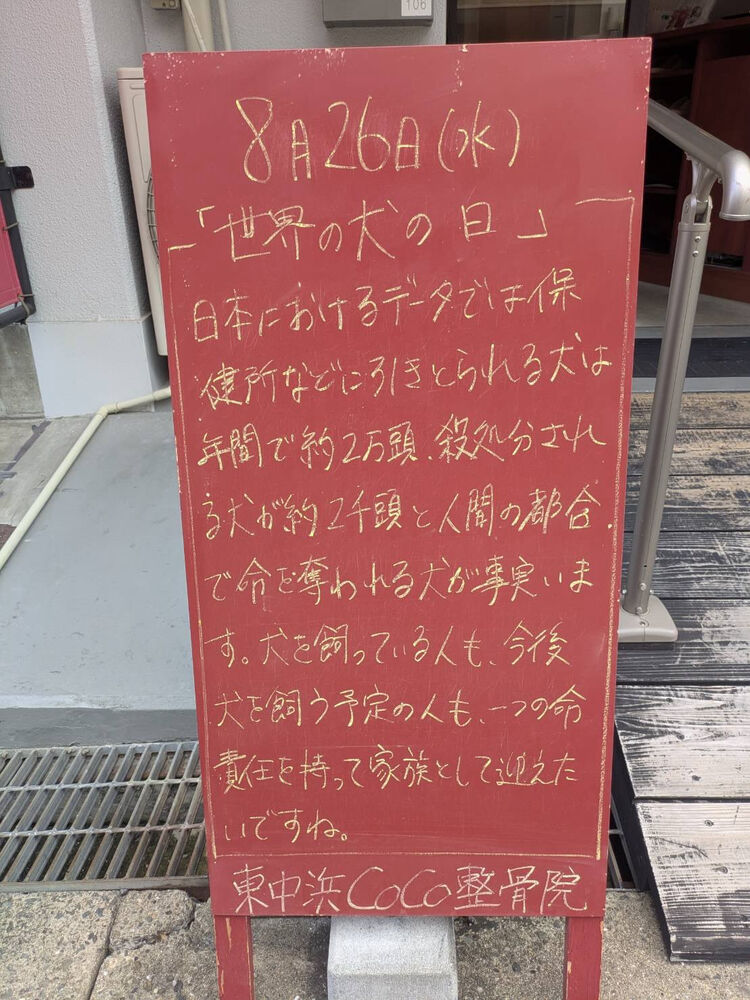 106
8月26日(水)
「世界の犬の日」
日本におけるデータでは保
健所などに引きとられる犬は
年間で約2万頭、殺処分され
る犬が約2千頭と人間の都合
で命を奪われる犬が事実いま
す。犬を飼っている人も、今後
犬を飼う予定の人も、一つの命
責任を持って家族として迎えた
いですね。
東中浜CoCo整骨院